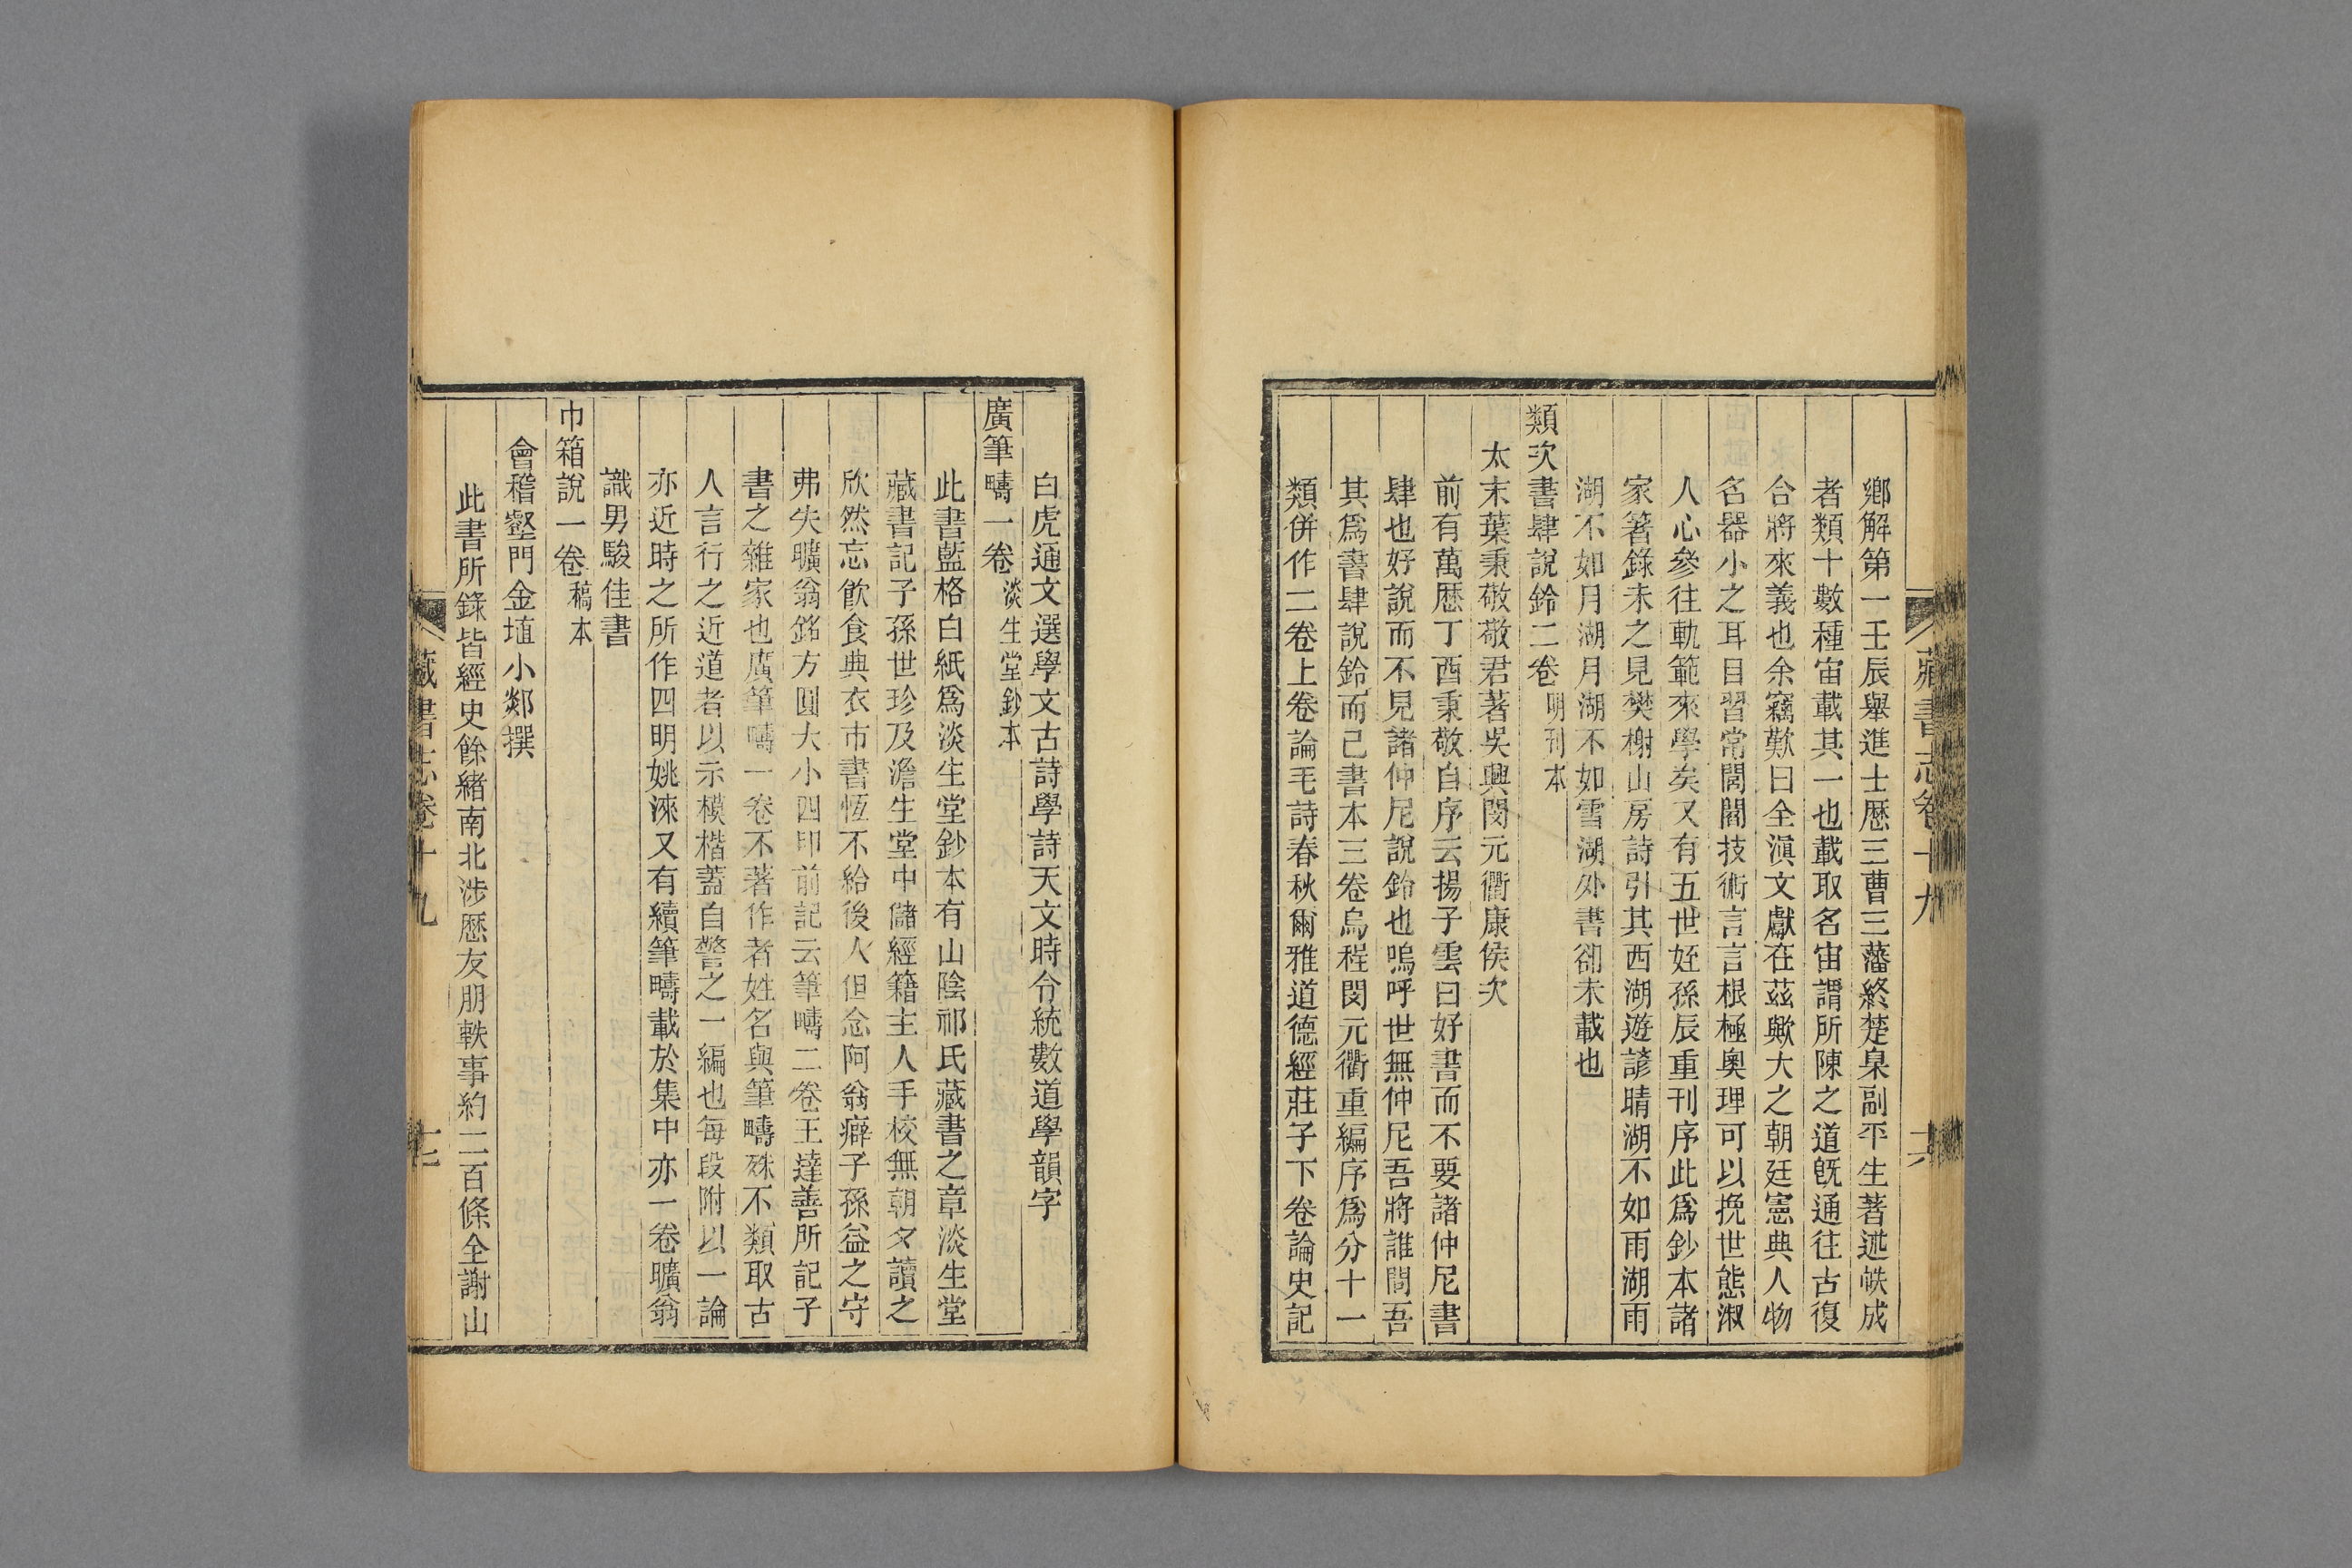 藏書志卷十九
十六
鄉解第一壬辰舉進士歷三曹三藩終楚臬副平生著述帙成
者類十數種宙載其一也載取名宙謂所陳之道旣通往古復
合將來義也余竊歎曰全滇文獻在茲歟大之朝廷憲典人物
名器小之耳目習常閭閻技術言言根極奧理可以挽世態淑
人心參往軌範來學矣又有五世姪孫辰重刊序此爲鈔本諸
家箸錄未之見樊榭山房詩引其西湖遊諺晴湖不如雨湖雨
湖不如月湖月湖不如雪湖外書卻未載也
類次書肆說鈴二卷明刊本
太末葉秉敬敬君著吳興閔元衢康侯次
前有萬歷丁酉秉敬自序云揚子雲曰好書而不要諸仲尼書
肆也好說而不見諸仲尼說鈴也嗚呼世無仲尼吾將誰問吾
其爲書肆說鈴而已書本三卷烏程閔元衢重編序爲分十一
類併作二卷上卷論毛詩春秋爾雅道德經莊子下卷論史記
白虎通文選學文古詩學詩天文時令統數道學韻字
廣筆疇一卷淡生堂鈔本
此書藍格白紙爲淡生堂鈔本有山陰祁氏藏書之章淡生堂
藏書記子孫世珍及澹生堂中儲經籍主人手校無朝夕讀之
欣然忘飮食典衣市書恆不給後人但念阿翁癖子孫益之守
弗失曠翁銘方圓大小四印前記云筆疇二卷王達善所記子
書之雜家也廣筆疇一卷不著作者姓名與筆疇殊不類取古
人言行之近道者以示模楷蓋自警之一編也每段附以一論
亦近時之所作四明姚淶又有續筆疇載於集中亦一卷曠翁
識男駿佳書
巾箱說一卷稿本
會稽壑門金埴小郯撰
此書所錄皆經史餘緒南北涉歷友朋軼事約二百條全謝山
藏書志卷十九
十七